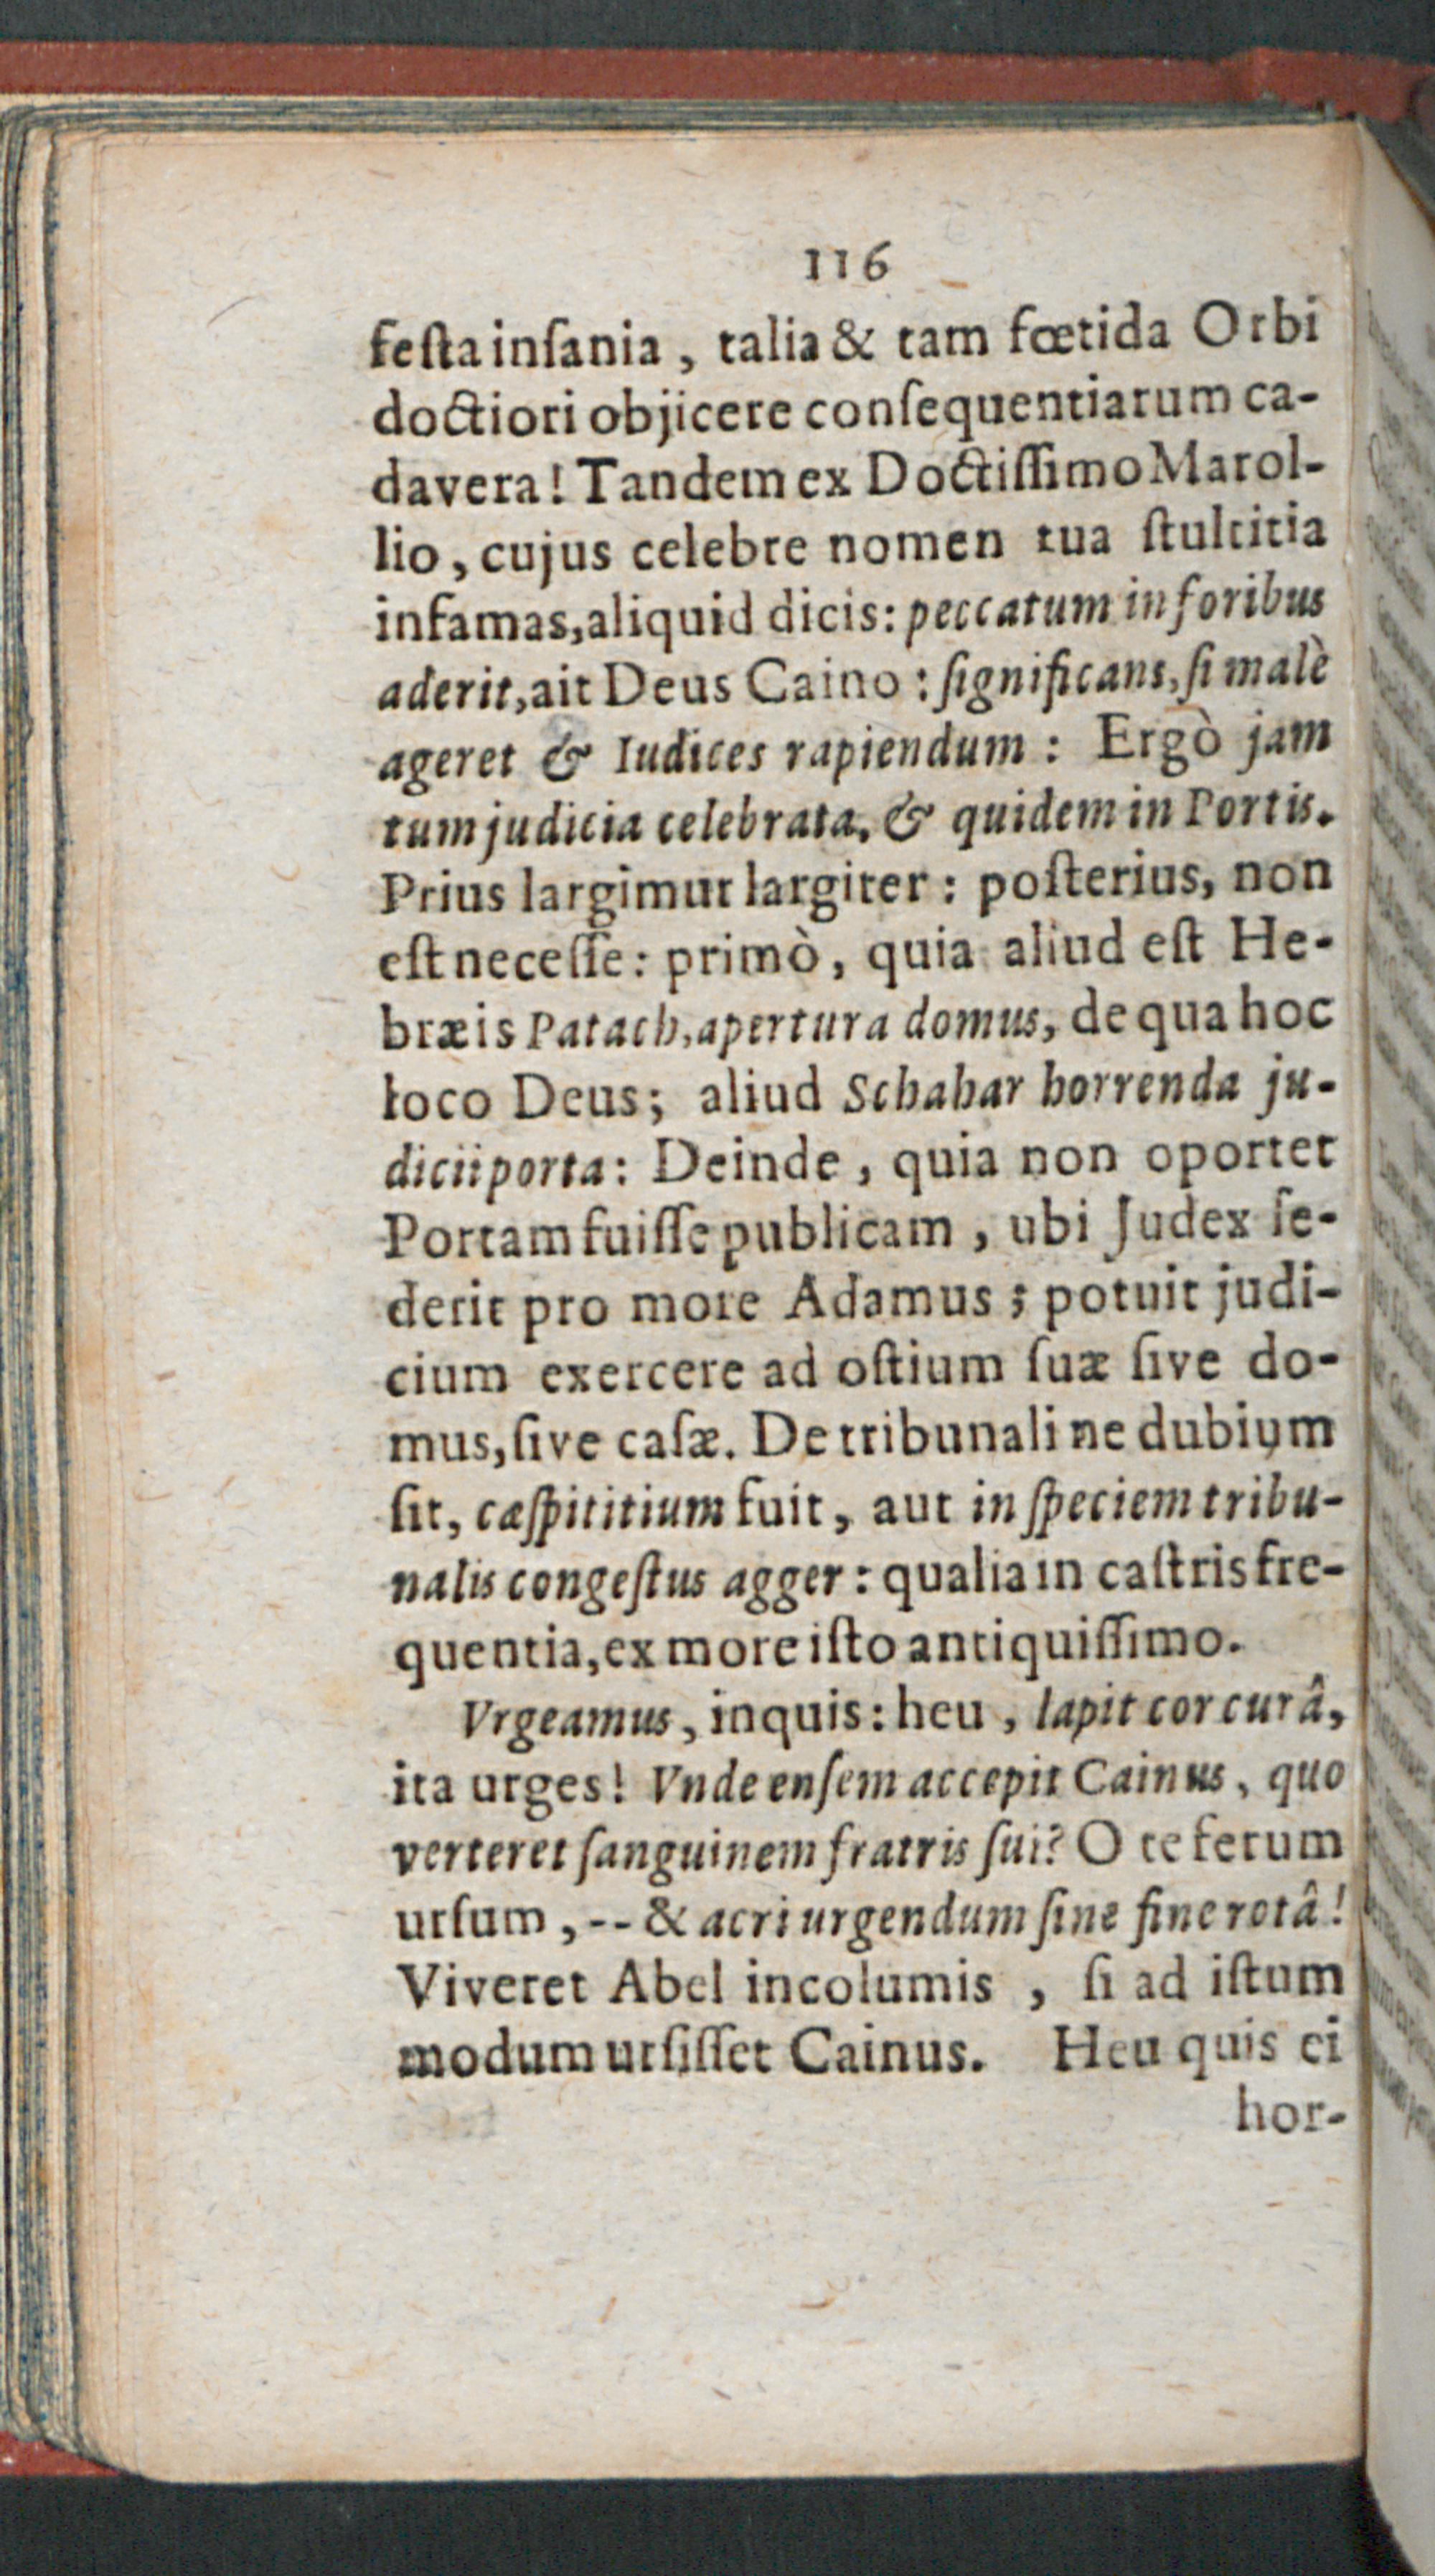 116
feſta inſania, talia & tam fœtida Orbi
doctiori objicere conſequentiarum ca-
davera! Tandem ex Doctiſſimo Marol-
lio, cujus celebre nomen tua ſtultitia
infamas, aliquid dicis: peccatum in foribus
aderit, ait Deus Caino: ſignificans, ſi malè
ageret & Iudices rapiendum: Ergò jam
tum judicia celebrata, & quidem in Portis.
Prius largimur largiter: poſterius, non
eſt neceſſe: primò, quia aliud eſt He-
bræis Patach, apertura domus, de qua hoc
loco Deus; aliud Schahar horrenda ju-
dicii porta: Deinde, quia non oportet
Portam fuiſſe publicam, ubi Judex ſe-
derit pro more Adamus; potuit judi-
cium exercere ad oſtium ſuæ ſive do-
mus, ſive caſæ. De tribunali ne dubium
ſit, cæſpititium fuit, aut in ſpeciem tribu-
nalis congeſtus agger: qualia in caſtris fre-
quentia, ex more iſto antiquiſſimo.
Vrgeamus, inquis: heu, lapit cor curâ,
ita urges! Vnde enſem accepit Cainus, quo
verteret ſanguinem fratris ſui? O te ferum
urſum, -- & acri urgendum ſine fine rotâ!
Viveret Abel incolumis, ſi ad iſtum
modum urſiſſet Cainus. Heu quis ei
hor-